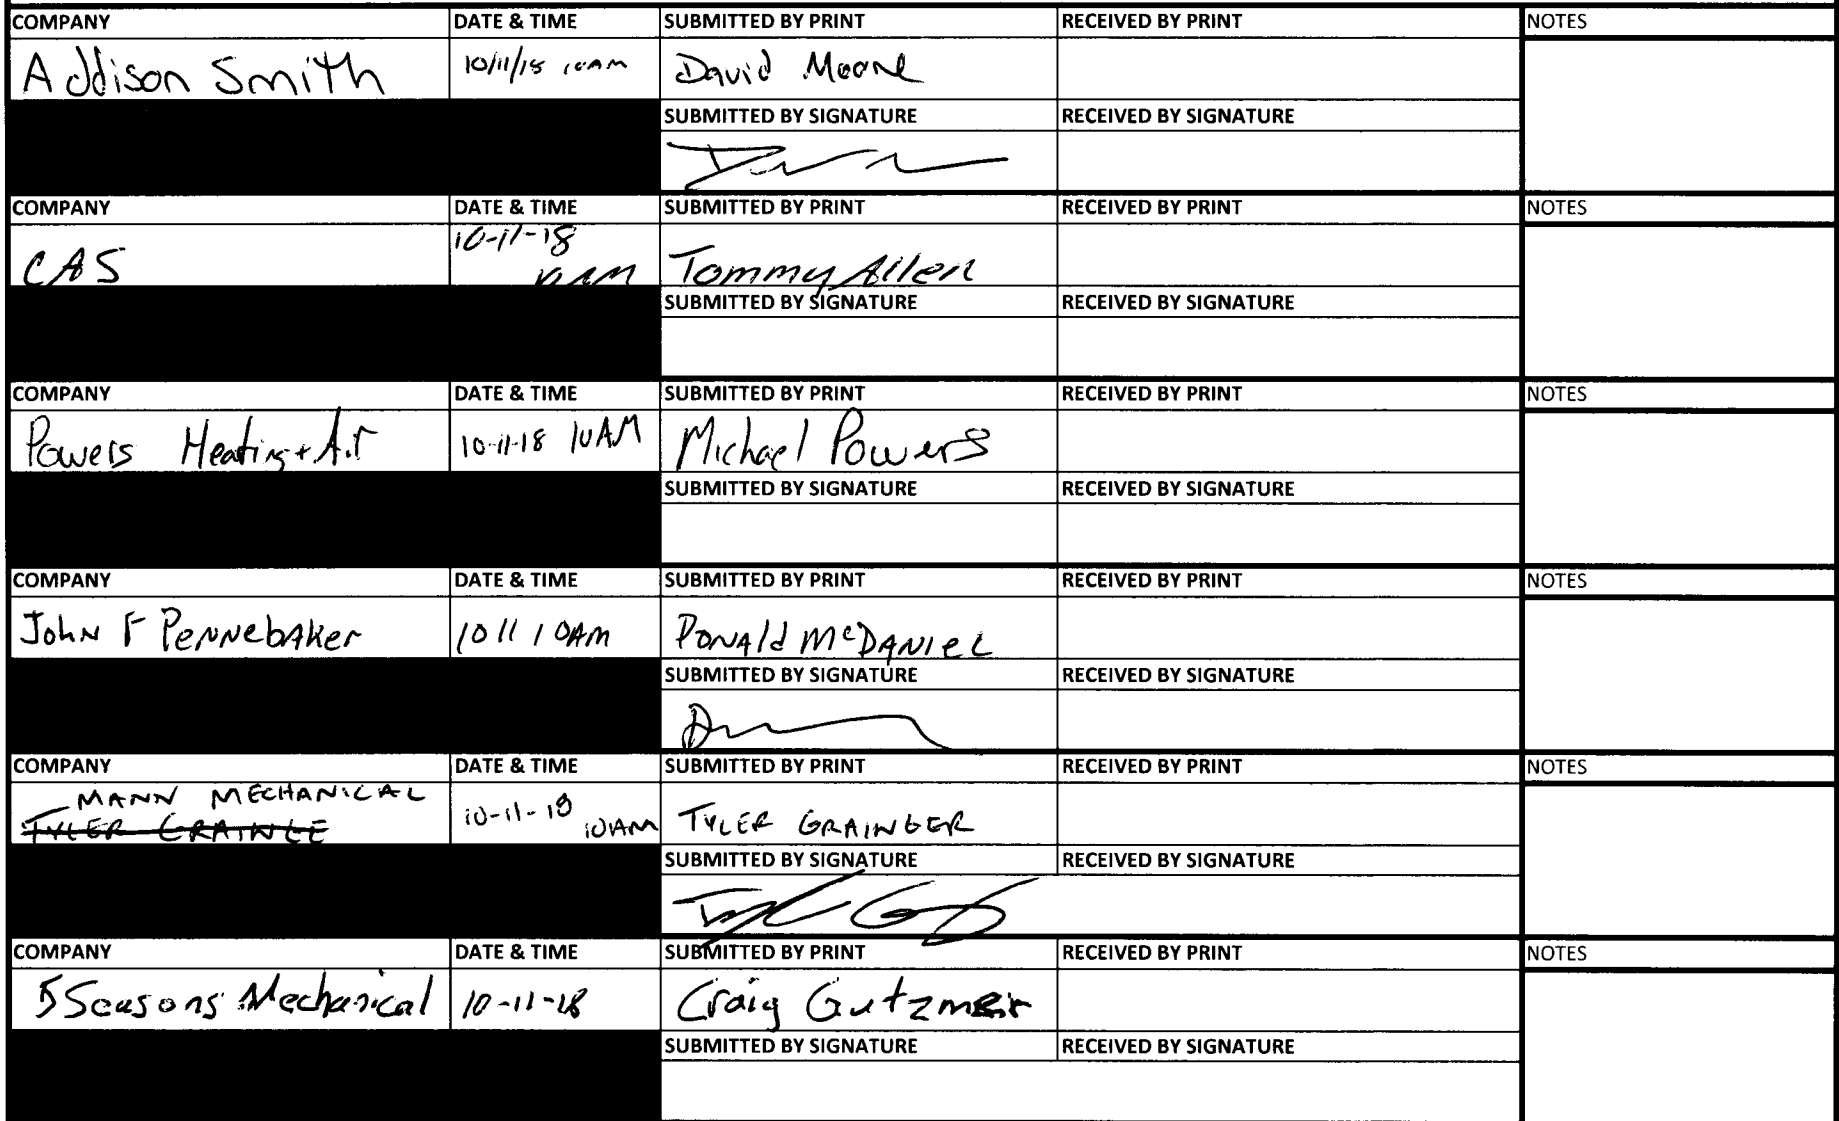 COMPANY DATE & TIME SUBMITTED BY PRINT RECEIVED BY PRINT NOTES
Addison Smith 10/11/18 10AM David Moore
SUBMITTED BY SIGNATURE RECEIVED BY SIGNATURE
COMPANY DATE & TIME SUBMITTED BY PRINT RECEIVED BY PRINT NOTES
10-11-18
CAS 10AM Tommy Allen
SUBMITTED BY SIGNATURE RECEIVED BY SIGNATURE
COMPANY DATE & TIME SUBMITTED BY PRINT RECEIVED BY PRINT NOTES
Powers Heating + Air 10-11-18 10AM Michael Powers
SUBMITTED BY SIGNATURE RECEIVED BY SIGNATURE
COMPANY DATE & TIME SUBMITTED BY PRINT RECEIVED BY PRINT NOTES
John F Pennebaker 10 11 10AM Donald McDaniel
SUBMITTED BY SIGNATURE RECEIVED BY SIGNATURE
COMPANY DATE & TIME SUBMITTED BY PRINT RECEIVED BY PRINT NOTES
MANN MECHANICAL
TYLER GRAINGE 10-11-18 10AM TYLER GRAINGER
SUBMITTED BY SIGNATURE RECEIVED BY SIGNATURE
COMPANY DATE & TIME SUBMITTED BY PRINT RECEIVED BY PRINT NOTES
5 Seasons Mechanical 10-11-18 Craig Gutzmeir
SUBMITTED BY SIGNATURE RECEIVED BY SIGNATURE